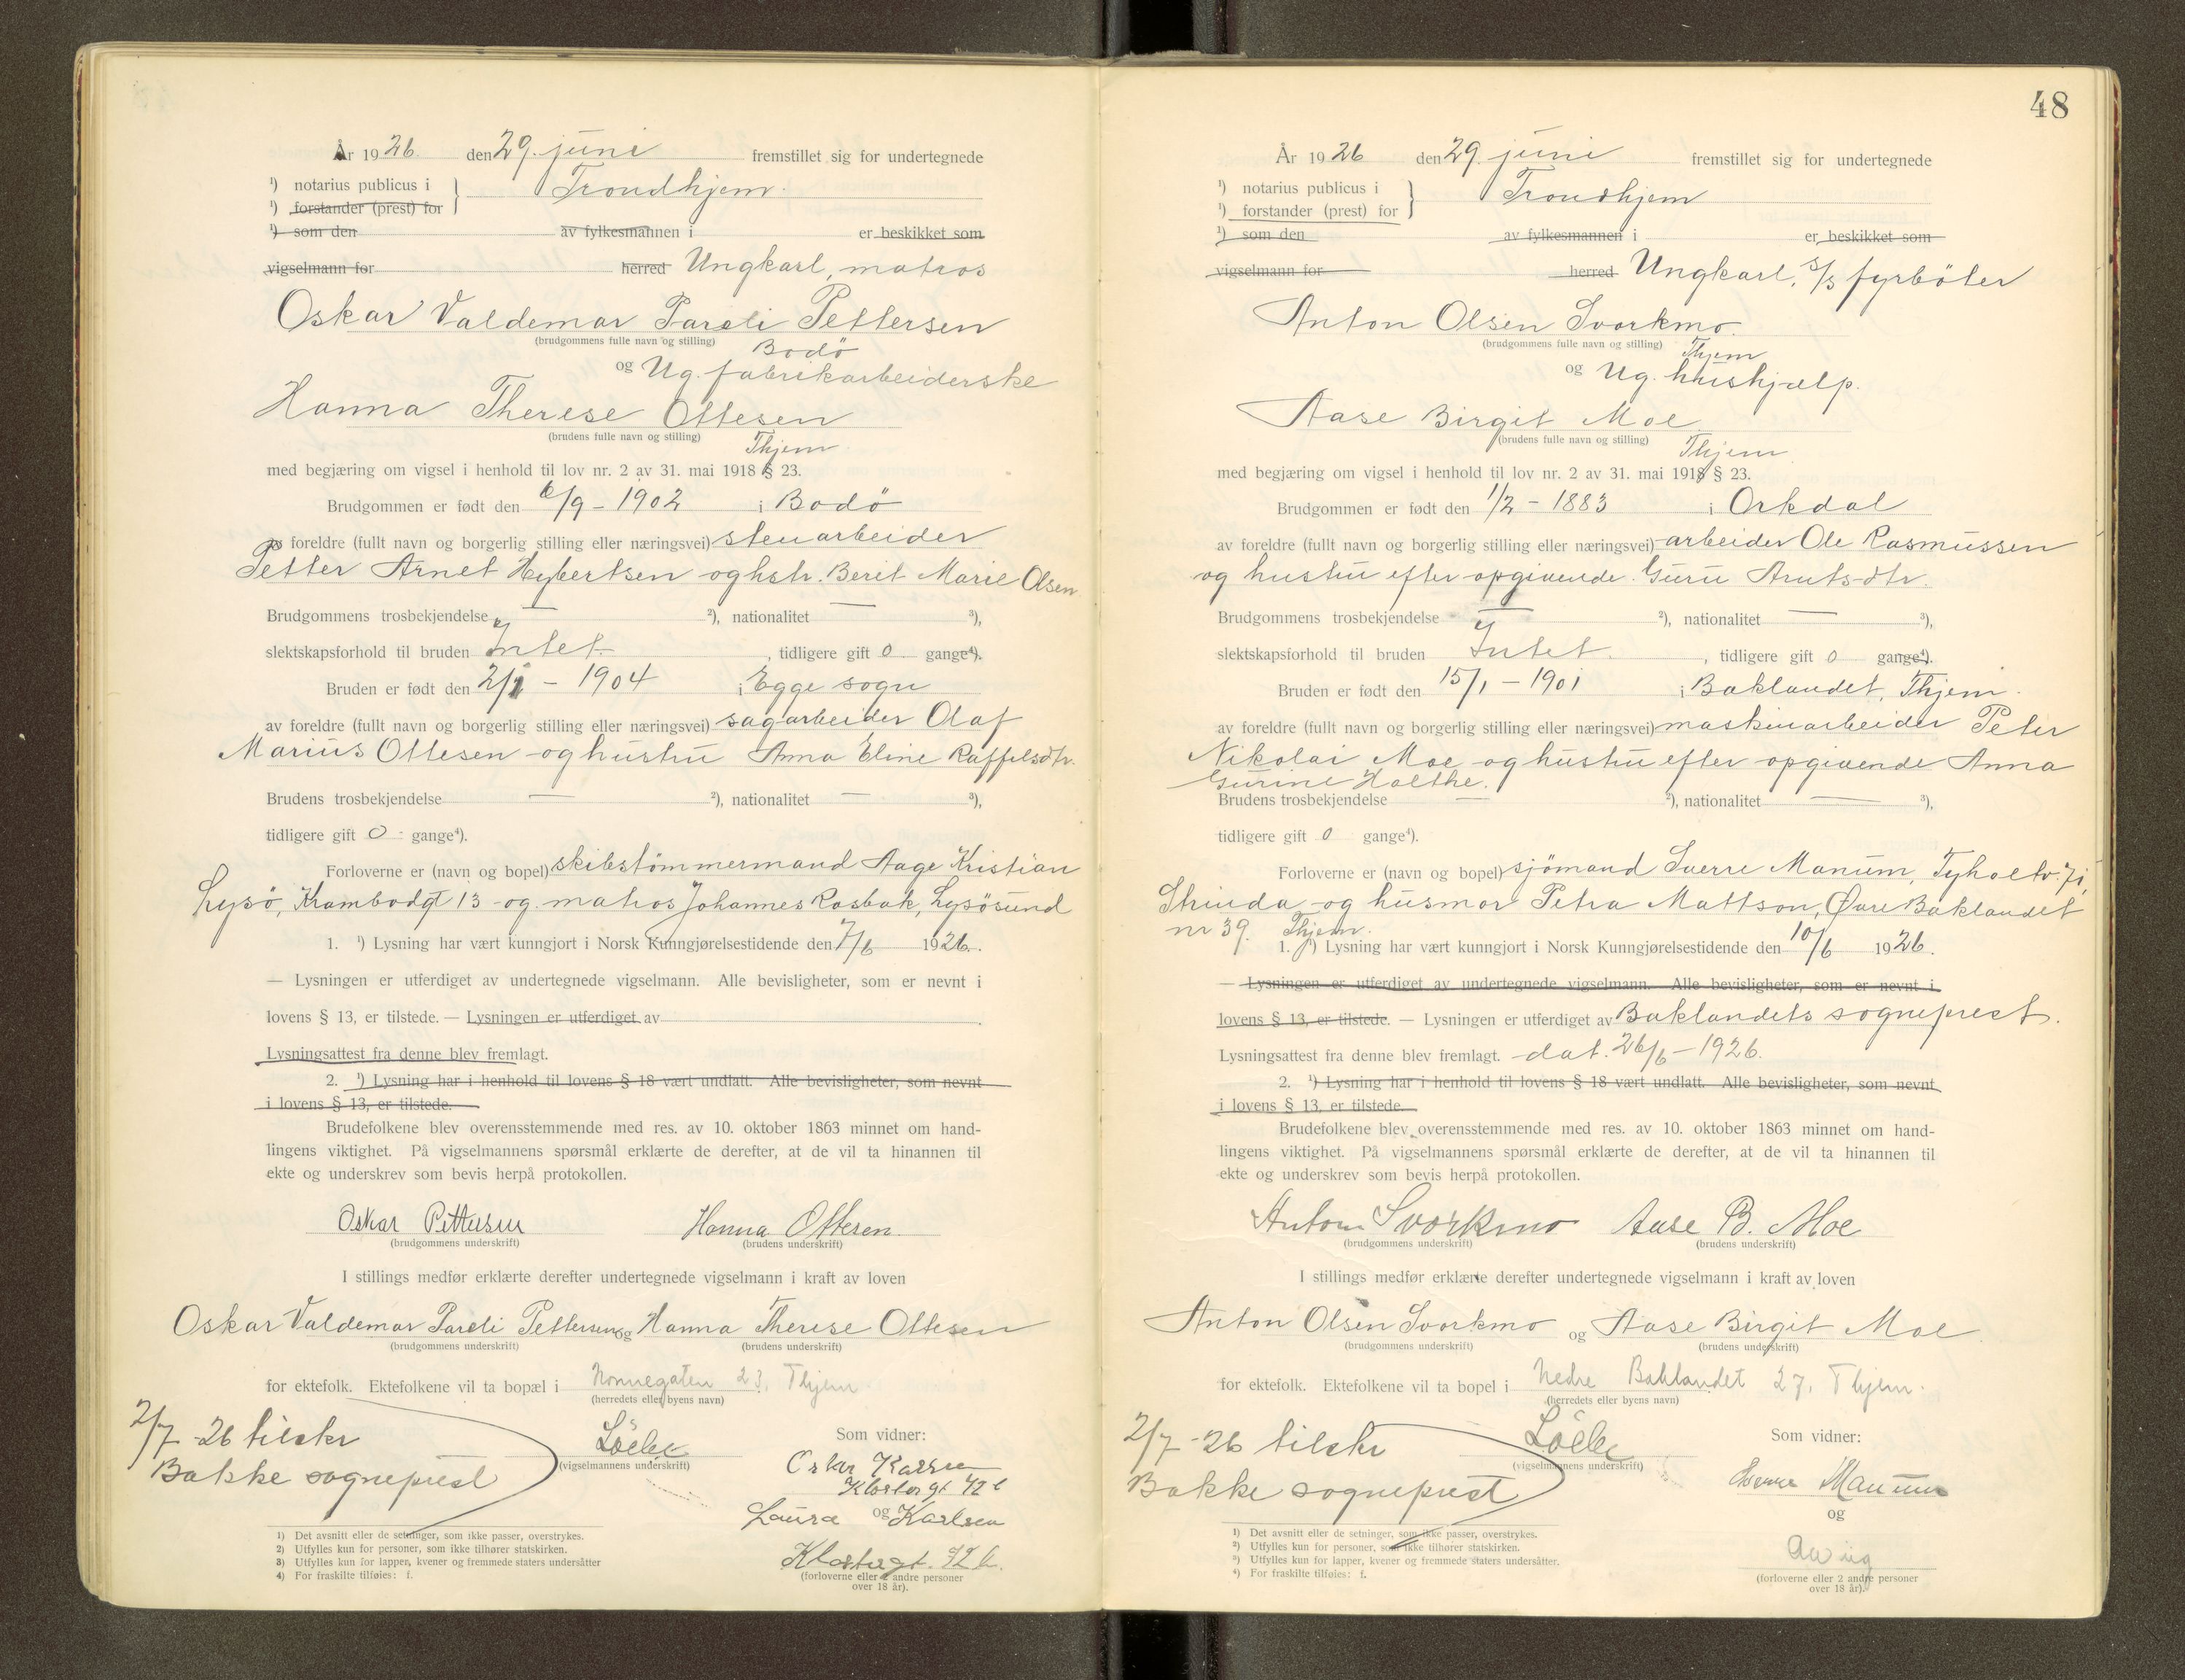 År 1926 den 29. juni fremstillet sig for undertegnede
¹) notarius publicus i } Trondhjem.
¹) forstander (prest) for
¹) som den av fylkesmannen i er beskikket som
vigselmann for herred Ungkarl, matros
Oskar Valdemar Pareli Pettersen
(brudgommens fulle navn og stilling)
Bodø
og Ug. fabrikarbeiderske
Hanna Therese Ottesen
(brudens fulle navn og stilling)
Thjem
med begjæring om vigsel i henhold til lov nr. 2 av 31. mai 1918 § 23.
Brudgommen er født den 6/9 - 1902 i Bodö
av foreldre (fullt navn og borgerlig stilling eller næringsvei) stenarbeider
Petter Arnet Hybertsen og hstr. Berit Marie Olsen
Brudgommens trosbekjendelse — ²), nationalitet — ³),
slektskapsforhold til bruden Intet , tidligere gift 0 gange⁴).
Bruden er født den 2/1 - 1904 i Egge sogn
av foreldre (fullt navn og borgerlig stilling eller næringsvei) sagarbeider Olaf
Marius Ottesen og hustru Anna Eline Raffelsdtr.
Brudens trosbekjendelse — ²), nationalitet — ³),
tidligere gift 0 - gange⁴).
Forloverne er (navn og bopel) skibstömmermand Aage Kristian
Lysö, Krambodgt 13 og matros Johannes Rosbak, Lysösund
1. ¹) Lysning har vært kunngjort i Norsk Kunngjørelsestidende den 7/6 1926.
— Lysningen er utferdiget av undertegnede vigselmann. Alle bevisligheter, som er nevnt i
lovens § 13, er tilstede. — Lysningen er utferdiget av
Lysningsattest fra denne blev fremlagt.
2. ¹) Lysning har i henhold til lovens § 18 vært undlatt. Alle bevisligheter, som nevnt
i lovens § 13, er tilstede.
Brudefolkene blev overensstemmende med res. av 10. oktober 1863 minnet om hand-
lingens viktighet. På vigselmannens spørsmål erklærte de derefter, at de vil ta hinannen til
ekte og underskrev som bevis herpå protokollen.
Oskar Pettersen Hanna Ottesen.
(brudgommens underskrift) (brudens underskrift)
I stillings medfør erklærte derefter undertegnede vigselmann i kraft av loven
Oskar Valdemar Pareli Pettersen og Hanna Therese Ottesen
(brudgommens underskrift) (brudens underskrift)
for ektefolk. Ektefolkene vil ta bopæl i Nonnegaten 23, Thjem
(herredets eller byens navn)
2/7 - 26 tilskr
Bakke sogneprest
(vigselmannens underskrift)
Som vidner:
Oskar Karlsen
Klostergt 42 b
Laura og Karlsen
Klostergt. 42 b.
(forloverne eller 2 andre personer
over 18 år).
1) Det avsnitt eller de setninger, som ikke passer, overstrykes.
2) Utfylles kun for personer, som ikke tilhører statskirken.
3) Utfylles kun for lapper, kvener og fremmede staters undersåtter
4) For fraskilte tilføies: f.
48
År 1926 den 29. juni fremstillet sig for undertegnede
¹) notarius publicus i } Trondhjem
¹) forstander (prest) for
¹) som den av fylkesmannen i er beskikket som
vigselmann for herred Ungkarl, s/s fyrböter
Anton Olsen Svorkmo.
(brudgommens fulle navn og stilling)
Thjem
og Ug. hushjælp.
Aase Birgit Moe
(brudens fulle navn og stilling)
Thjem
med begjæring om vigsel i henhold til lov nr. 2 av 31. mai 1918 § 23.
Brudgommen er født den 1/2 - 1883 i Orkdal
av foreldre (fullt navn og borgerlig stilling eller næringsvei) arbeider Ole Rasmussen
og hustru efter opgivende Guru Arntsdtr.
Brudgommens trosbekjendelse — ²), nationalitet — ³),
slektskapsforhold til bruden Intet , tidligere gift 0 gange⁴).
Bruden er født den 15/1 - 1901 i Baklandet, Thjem.
av foreldre (fullt navn og borgerlig stilling eller næringsvei) maskinarbeider Peter
Nikolai Moe og hustru efter opgivende Anna
Gurine Holthe.
Brudens trosbekjendelse — ²), nationalitet — ³),
tidligere gift 0 gange⁴).
Forloverne er (navn og bopel) sjömand Sverre Manum, Tyholtv. 71,
Strinda og husmor Petra Mattson, Øvre Baklandet
nr 39. Thjem.
1. ¹) Lysning har vært kunngjort i Norsk Kunngjørelsestidende den 10/6 1926.
— Lysningen er utferdiget av undertegnede vigselmann. Alle bevisligheter, som er nevnt i
lovens § 13, er tilstede. — Lysningen er utferdiget av Baklandets sogneprest.
Lysningsattest fra denne blev fremlagt. dat. 26/6 - 1926.
2. ¹) Lysning har i henhold til lovens § 18 vært undlatt. Alle bevisligheter, som nevnt
i lovens § 13, er tilstede.
Brudefolkene blev overensstemmende med res. av 10. oktober 1863 minnet om hand-
lingens viktighet. På vigselmannens spørsmål erklærte de derefter, at de vil ta hinannen til
ekte og underskrev som bevis herpå protokollen.
Anton Svorkmo Aase B. Moe
(brudgommens underskrift) (brudens underskrift)
I stillings medfør erklærte derefter undertegnede vigselmann i kraft av loven
Anton Olsen Svorkmo og Aase Birgit Moe.
(brudgommens underskrift) (brudens underskrift)
for ektefolk. Ektefolkene vil ta bopel i Nedre Baklandet 27, Thjem.
(herredets eller byens navn)
2/7 - 26 tilskr
Bakke sogneprest
(vigselmannens underskrift)
Som vidner:
Sverre Manum
og
(forloverne eller 2 andre personer
over 18 år).
1) Det avsnitt eller de setninger, som ikke passer, overstrykes.
2) Utfylles kun for personer, som ikke tilhører statskirken.
3) Utfylles kun for lapper, kvener og fremmede staters undersåtter.
4) For fraskilte tilføies: f.